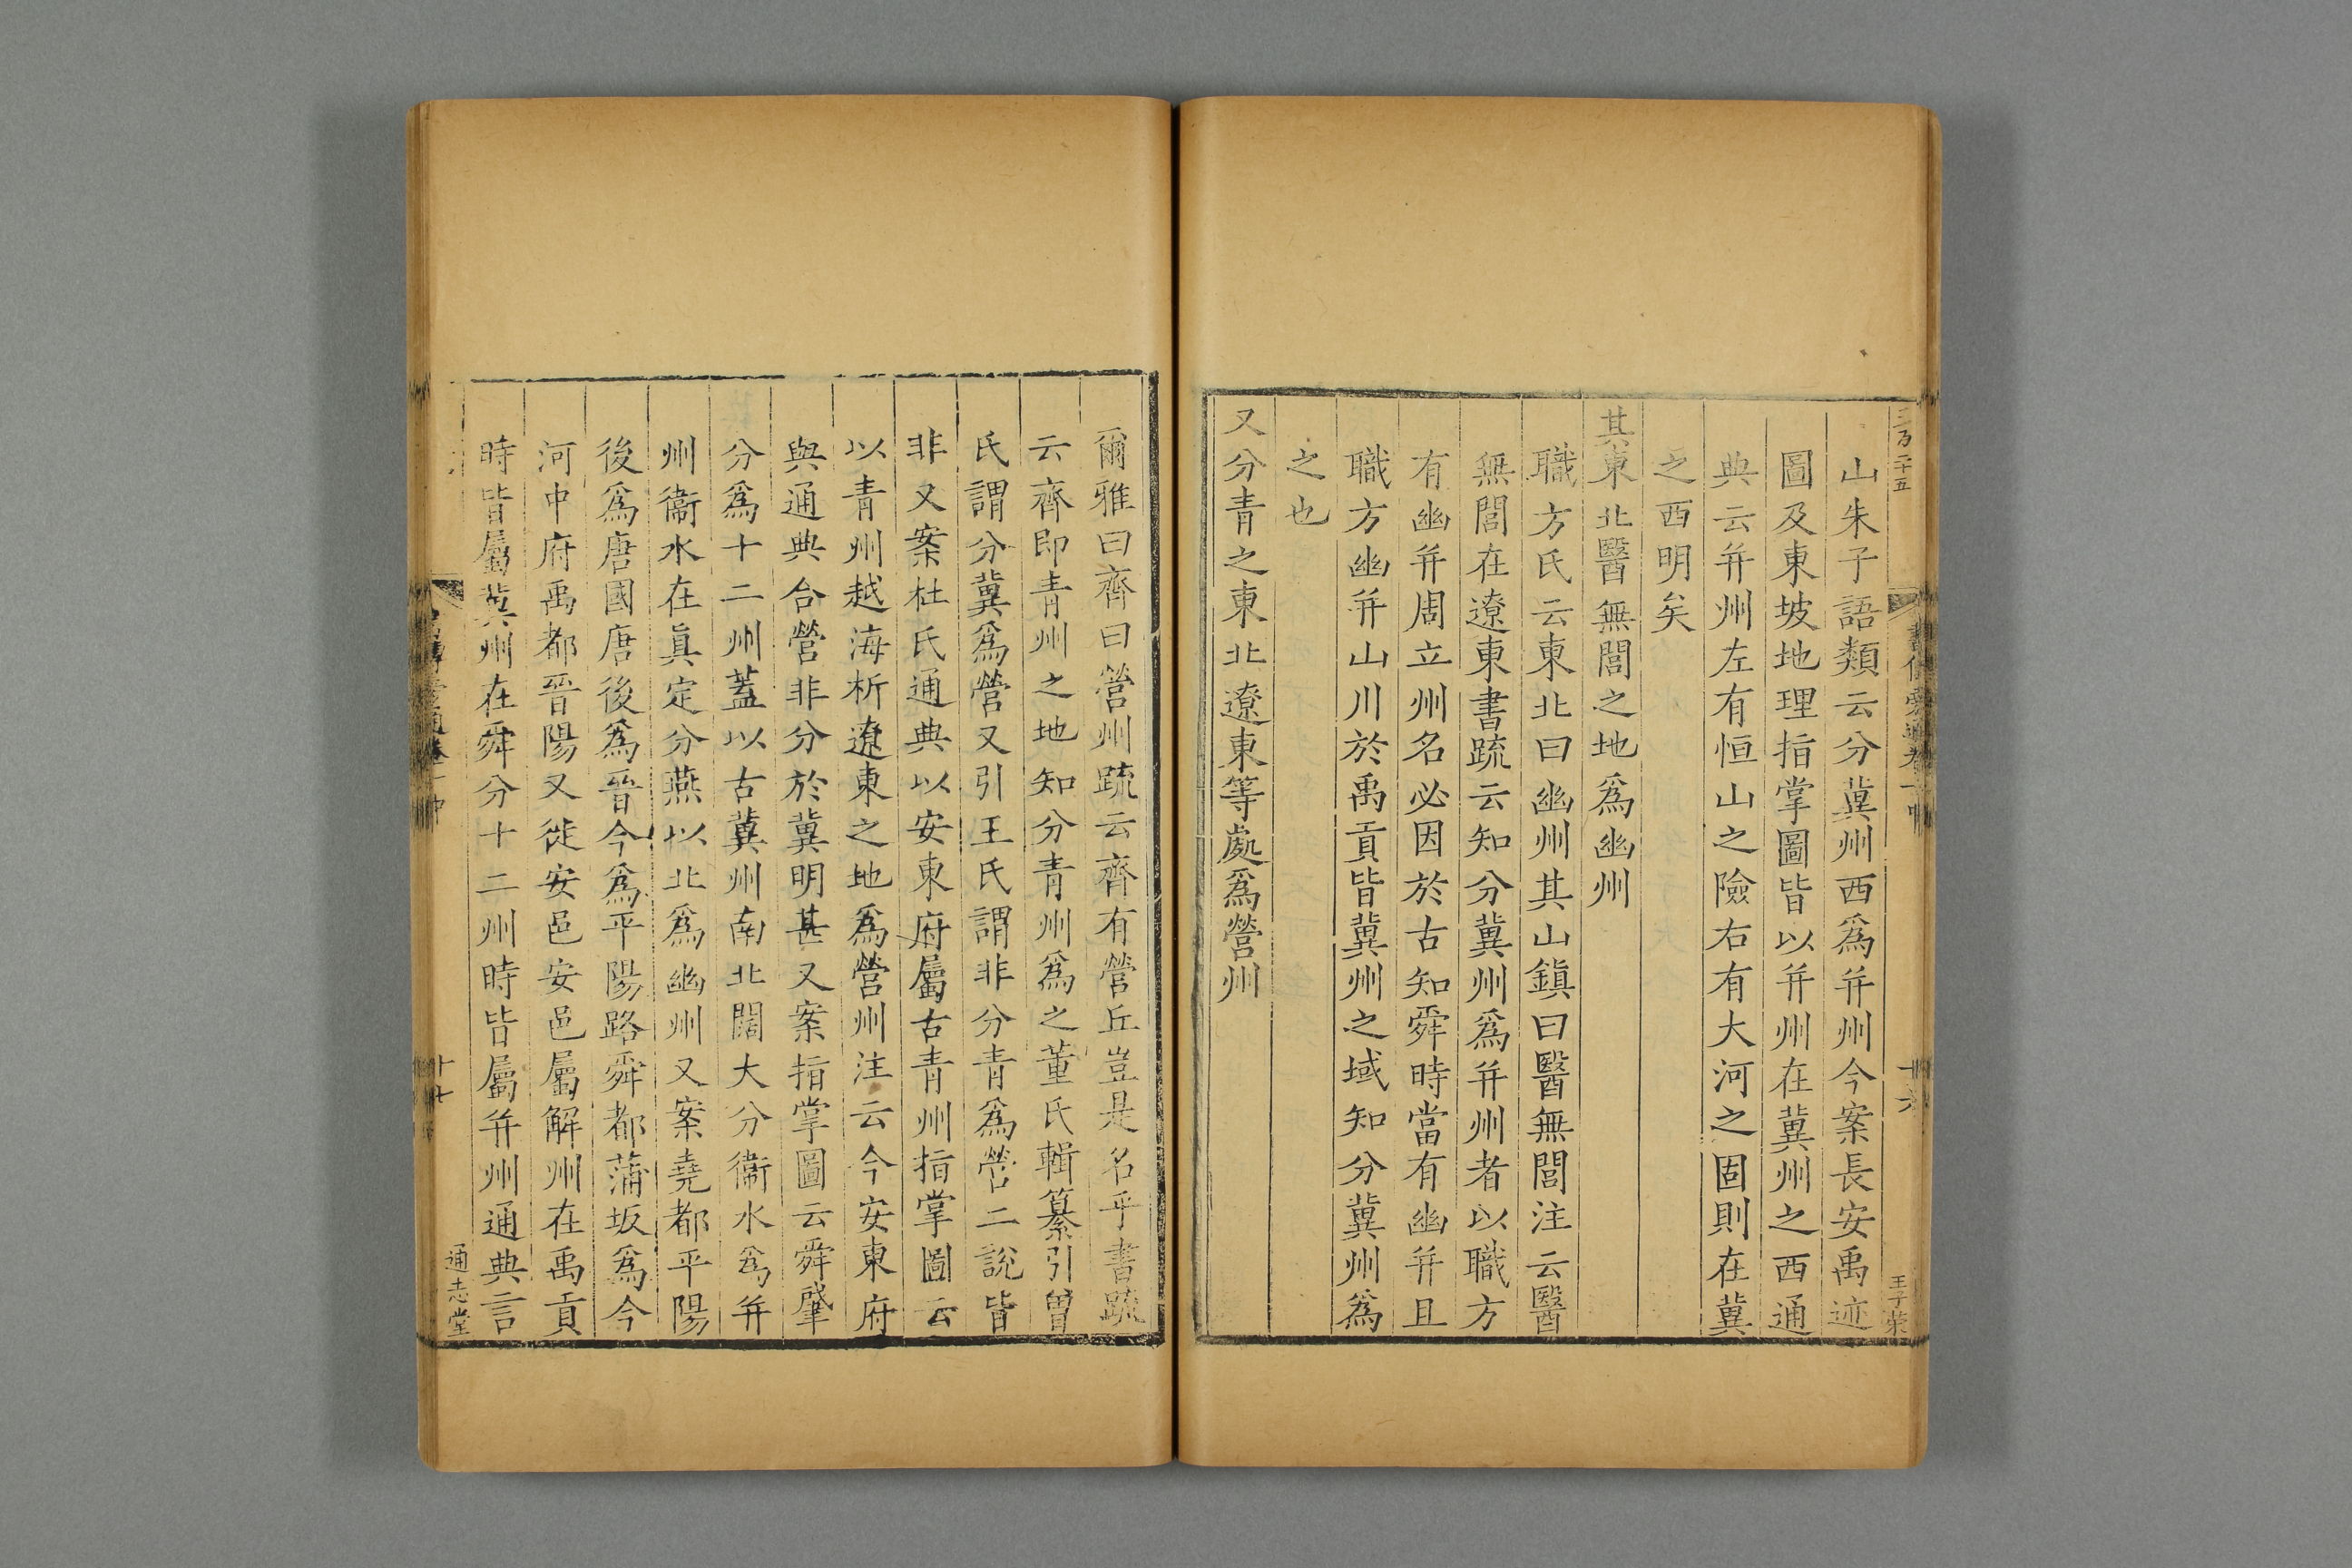 山朱子語類云分冀州西爲并州今案長安禹迹
圖及東坡地理指掌圖皆以并州在冀州之西通
典云并州左有恒山之險右有大河之固則在冀
之西明矣
其東北醫無閭之地爲幽州
職方氏云東北曰幽州其山鎮曰醫無閭注云醫
無閭在遼東書疏云知分冀州爲并州者以職方
有幽并周立州名必因於古知舜時當有幽并且
職方幽并山川於禹貢皆冀州之域知分冀州爲
之也
又分青之東北遼東等處爲營州
爾雅曰齊曰營州疏云齊有營丘豈是名乎書疏
云齊即青州之地知分青州爲之董氏輯纂引曾
氏謂分冀爲營又引王氏謂非分青爲營二說皆
非又案杜氏通典以安東府屬古青州指掌圖云
以青州越海析遼東之地爲營州注云今安東府
與通典合營非分於冀明甚又案指掌圖云舜肇
分爲十二州蓋以古冀州南北闊大分衞水爲并
州衞水在真定分燕以北爲幽州又案堯都平陽
後爲唐國唐後爲晉今爲平陽路舜都蒲坂爲今
河中府禹都晉陽又徙安邑安邑屬解州在禹貢
時皆屬冀州在舜分十二州時皆屬并州通典言
十七
通志堂